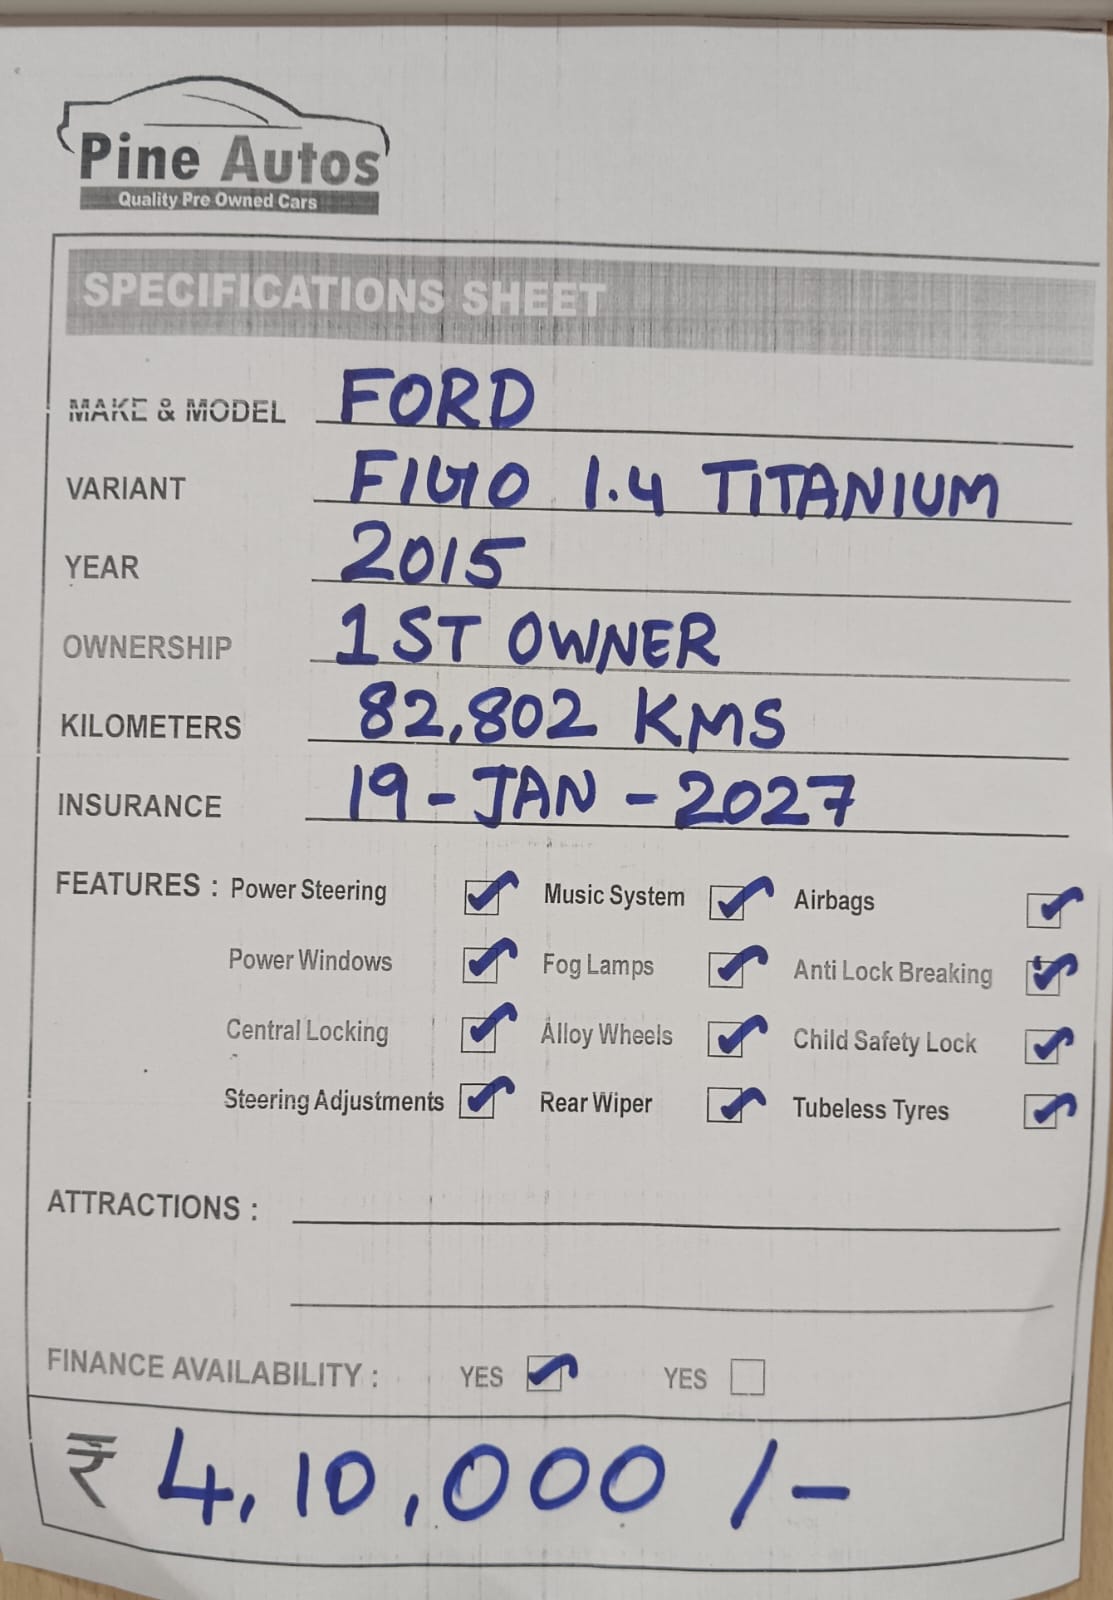 Pine Autos
Quality Pre Owned Cars
SPECIFICATIONS SHEET
MAKE & MODEL FORD
VARIANT FIGO 1.4 TITANIUM
YEAR 2015
OWNERSHIP 1ST OWNER
KILOMETERS 82,802 KMS
INSURANCE 19-JAN-2027
FEATURES : Power Steering Music System Airbags
Power Windows Fog Lamps Anti Lock Breaking
Central Locking Alloy Wheels Child Safety Lock
Steering Adjustments Rear Wiper Tubeless Tyres
ATTRACTIONS :
FINANCE AVAILABILITY : YES YES
₹ 4,10,000 /-